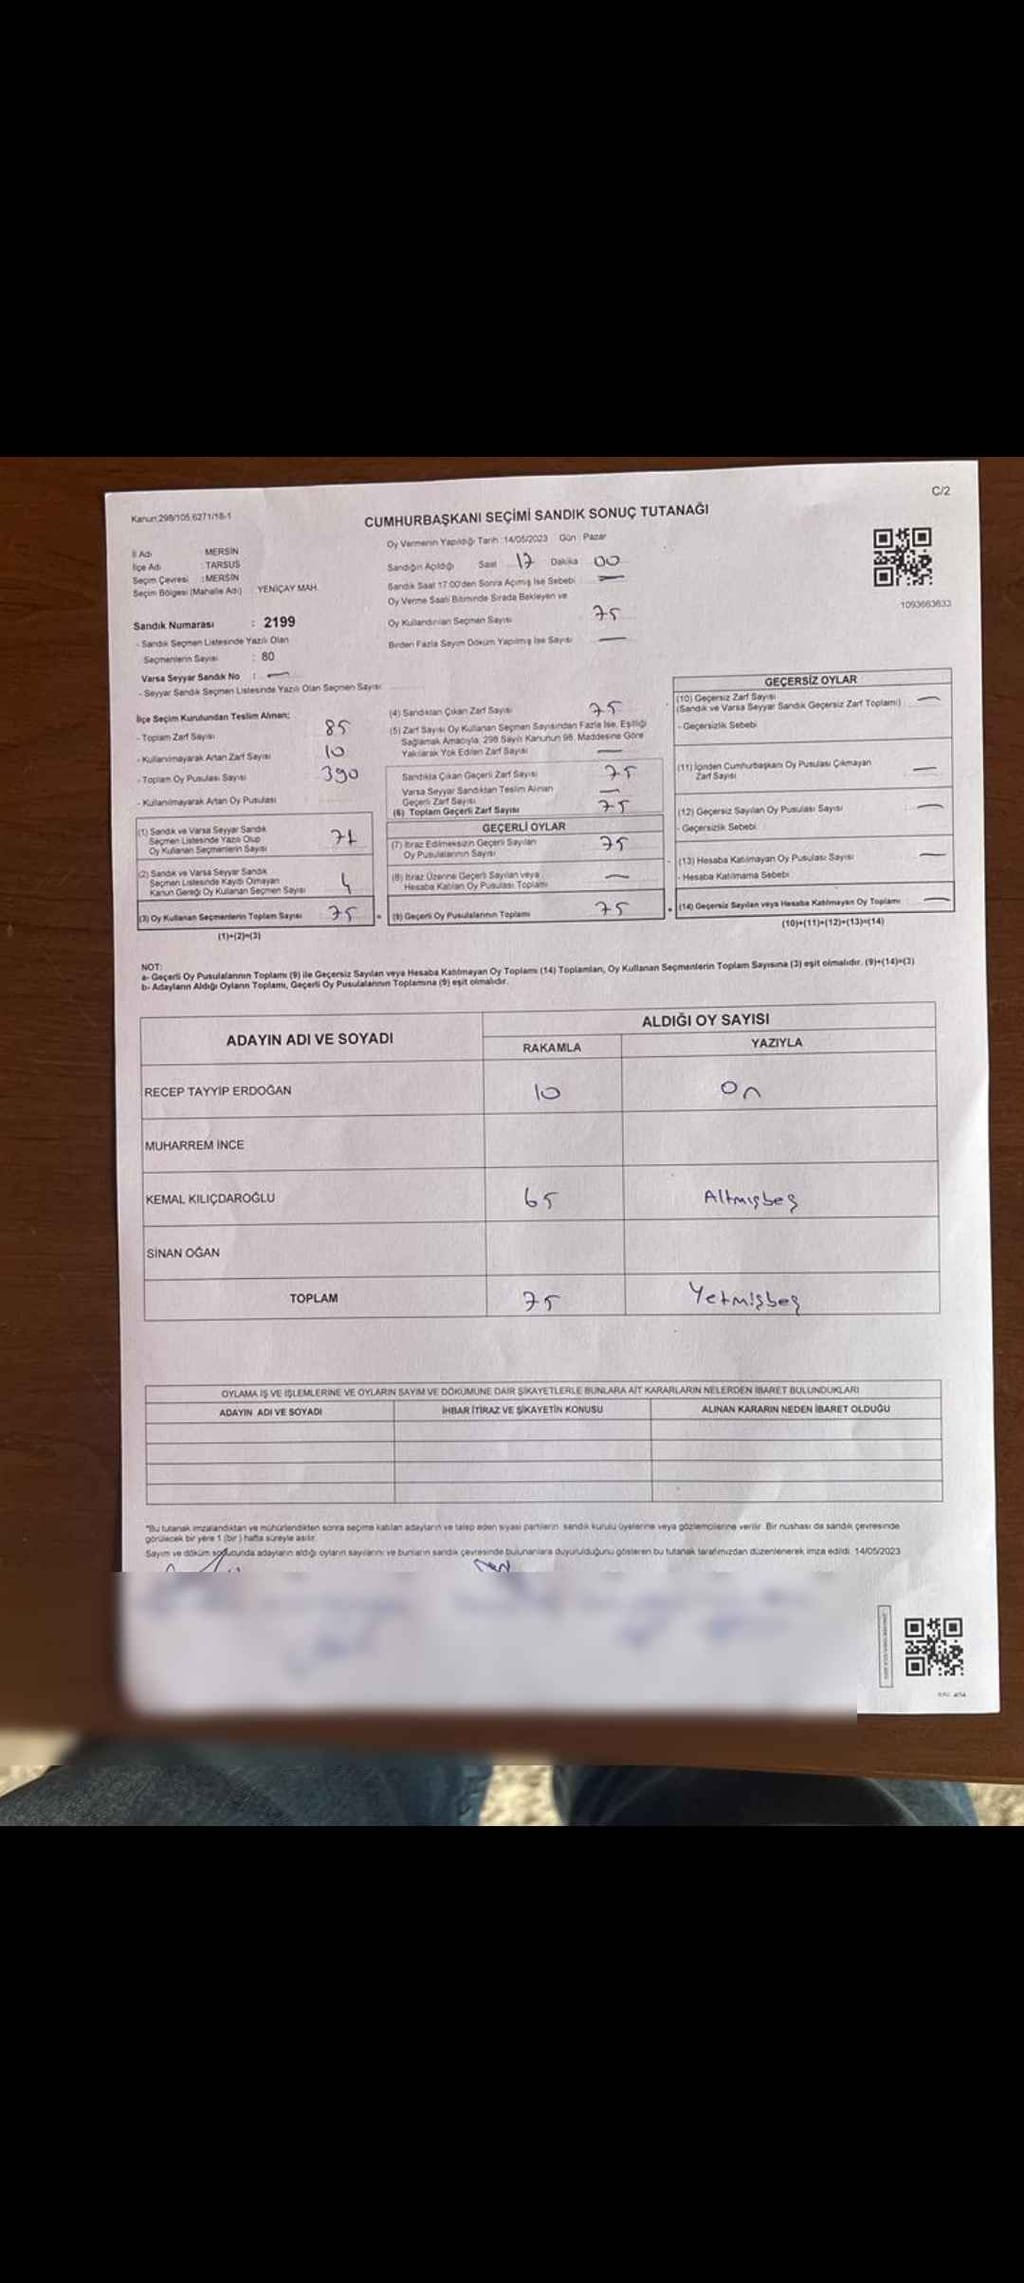 C/2
Kanun:298/105,6271/18-1
CUMHURBAŞKANI SEÇİMİ SANDIK SONUÇ TUTANAĞI
Oy Vermenin Yapıldığı Tarih :14/05/2023 Gün : Pazar
İl Adı : MERSİN
İlçe Adı : TARSUS
Seçim Çevresi : MERSİN
Seçim Bölgesi (Mahalle Adı) : YENİÇAY MAH.
Sandığın Açıldığı Saat 17 Dakika 00
Sandık Saat 17:00'den Sonra Açılmış İse Sebebi —
Oy Verme Saati Bitiminde Sırada Bekleyen ve
Oy Kullandırılan Seçmen Sayısı 75
Birden Fazla Sayım Döküm Yapılmış İse Sayısı —
1093663633
Sandık Numarası : 2199
- Sandık Seçmen Listesinde Yazılı Olan
Seçmenlerin Sayısı : 80
Varsa Seyyar Sandık No : —
- Seyyar Sandık Seçmen Listesinde Yazılı Olan Seçmen Sayısı
İlçe Seçim Kurulundan Teslim Alınan;
- Toplam Zarf Sayısı 85
- Kullanılmayarak Artan Zarf Sayısı 10
- Toplam Oy Pusulası Sayısı 390
- Kullanılmayarak Artan Oy Pusulası
(1) Sandık ve Varsa Seyyar Sandık
Seçmen Listesinde Yazılı Olup
Oy Kullanan Seçmenlerin Sayısı 71
(2) Sandık ve Varsa Seyyar Sandık
Seçmen Listesinde Kaydı Olmayan
Kanun Gereği Oy Kullanan Seçmen Sayısı 4
(3) Oy Kullanan Seçmenlerin Toplam Sayısı 75 =
(1)+(2)=(3)
(4) Sandıktan Çıkan Zarf Sayısı 75
(5) Zarf Sayısı Oy Kullanan Seçmen Sayısından Fazla İse, Eşitliği
Sağlamak Amacıyla, 298 Sayılı Kanunun 98. Maddesine Göre
Yakılarak Yok Edilen Zarf Sayısı —
Sandıkta Çıkan Geçerli Zarf Sayısı 75
Varsa Seyyar Sandıktan Teslim Alınan
Geçerli Zarf Sayısı —
(6) Toplam Geçerli Zarf Sayısı 75
GEÇERLİ OYLAR
(7) İtiraz Edilmeksizin Geçerli Sayılan
Oy Pusulalarının Sayısı 75
(8) İtiraz Üzerine Geçerli Sayılan veya
Hesaba Katılan Oy Pusulası Toplamı —
(9) Geçerli Oy Pusulalarının Toplamı 75 +
GEÇERSİZ OYLAR
(10) Geçersiz Zarf Sayısı —
(Sandık ve Varsa Seyyar Sandık Geçersiz Zarf Toplamı)
- Geçersizlik Sebebi
(11) İçinden Cumhurbaşkanı Oy Pusulası Çıkmayan
Zarf Sayısı —
(12) Geçersiz Sayılan Oy Pusulası Sayısı —
- Geçersizlik Sebebi
(13) Hesaba Katılmayan Oy Pusulası Sayısı —
- Hesaba Katılmama Sebebi
(14) Geçersiz Sayılan veya Hesaba Katılmayan Oy Toplamı —
(10)+(11)+(12)+(13)=(14)
NOT:
a- Geçerli Oy Pusulalarının Toplamı (9) ile Geçersiz Sayılan veya Hesaba Katılmayan Oy Toplamı (14) Toplamları, Oy Kullanan Seçmenlerin Toplam Sayısına (3) eşit olmalıdır. (9)+(14)=(3)
b- Adayların Aldığı Oyların Toplamı, Geçerli Oy Pusulalarının Toplamına (9) eşit olmalıdır.
ADAYIN ADI VE SOYADI
ALDIĞI OY SAYISI
RAKAMLA YAZIYLA
RECEP TAYYİP ERDOĞAN 10 On
MUHARREM İNCE
KEMAL KILIÇDAROĞLU 65 Altmışbeş
SİNAN OĞAN
TOPLAM 75 Yetmişbeş
OYLAMA İŞ VE İŞLEMLERİNE VE OYLARIN SAYIM VE DÖKÜMÜNE DAİR ŞİKAYETLERLE BUNLARA AİT KARARLARIN NELERDEN İBARET BULUNDUKLARI
ADAYIN ADI VE SOYADI İHBAR İTİRAZ VE ŞİKAYETİN KONUSU ALINAN KARARIN NEDEN İBARET OLDUĞU
*Bu tutanak imzalandıktan ve mühürlendikten sonra seçime katılan adayların ve talep eden siyasi partilerin sandık kurulu üyelerine veya gözlemcilerine verilir. Bir nüshası da sandık çevresinde
görülecek bir yere 1 (bir) hafta süreyle asılır.
Sayım ve döküm sonucunda adayların aldığı oyların sayılarını ve bunların sandık çevresinde bulunanlara duyurulduğunu gösteren bu tutanak tarafımızdan düzenlenerek imza edildi. 14/05/2023